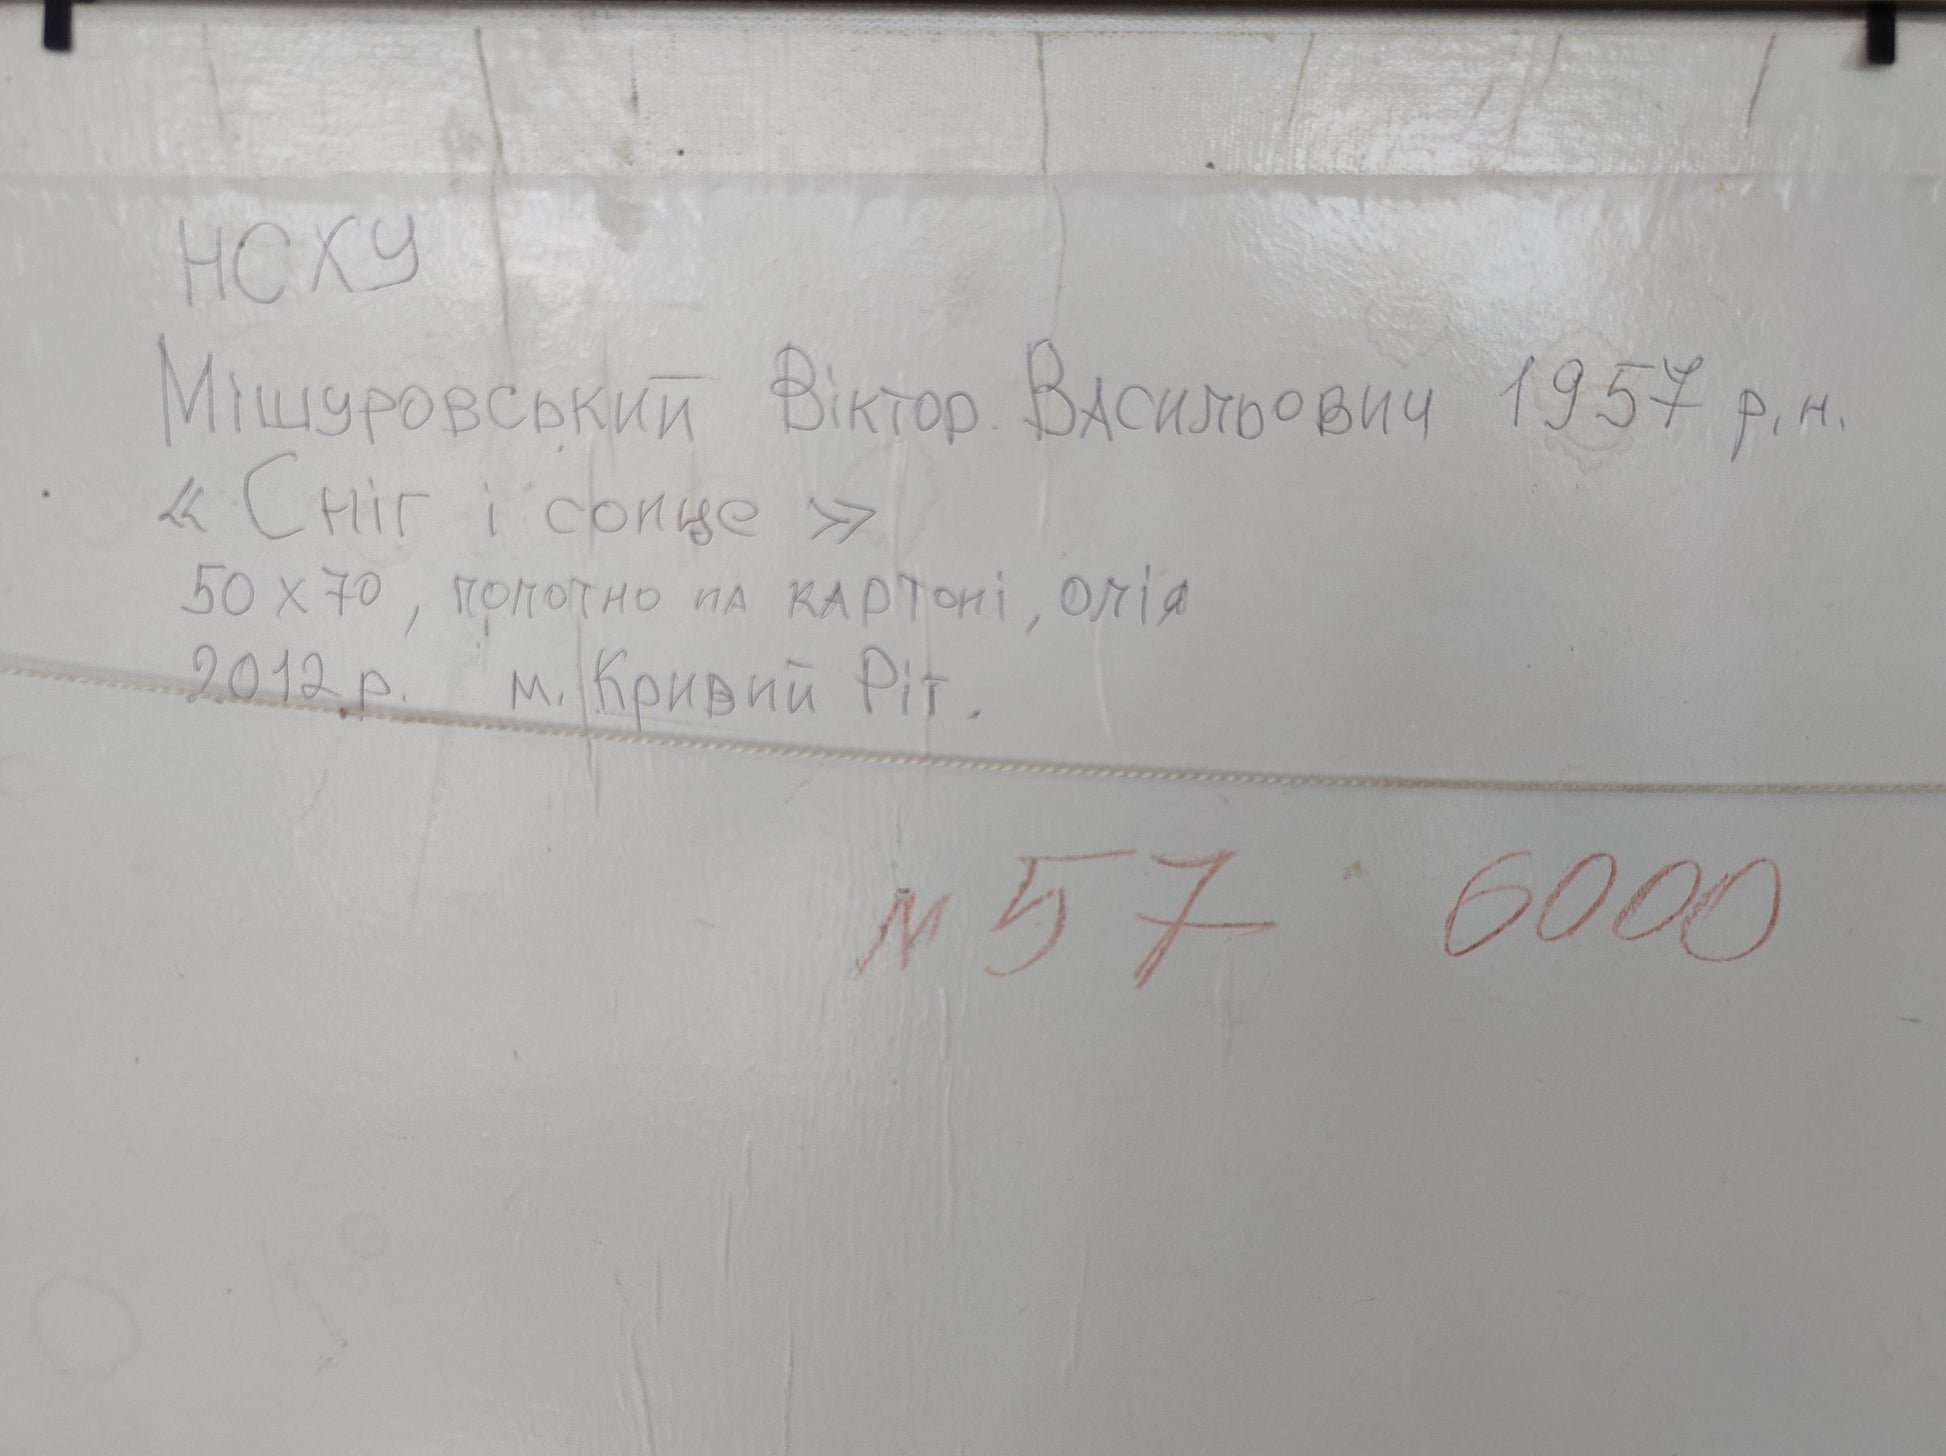 НСХУ
Мішуровський Віктор Васильович 1957 р.н.
« Сніг і сонце »
50 х 70, полотно на картоні, олія
2012 р. м. Кривий Ріг.
N 57 6000